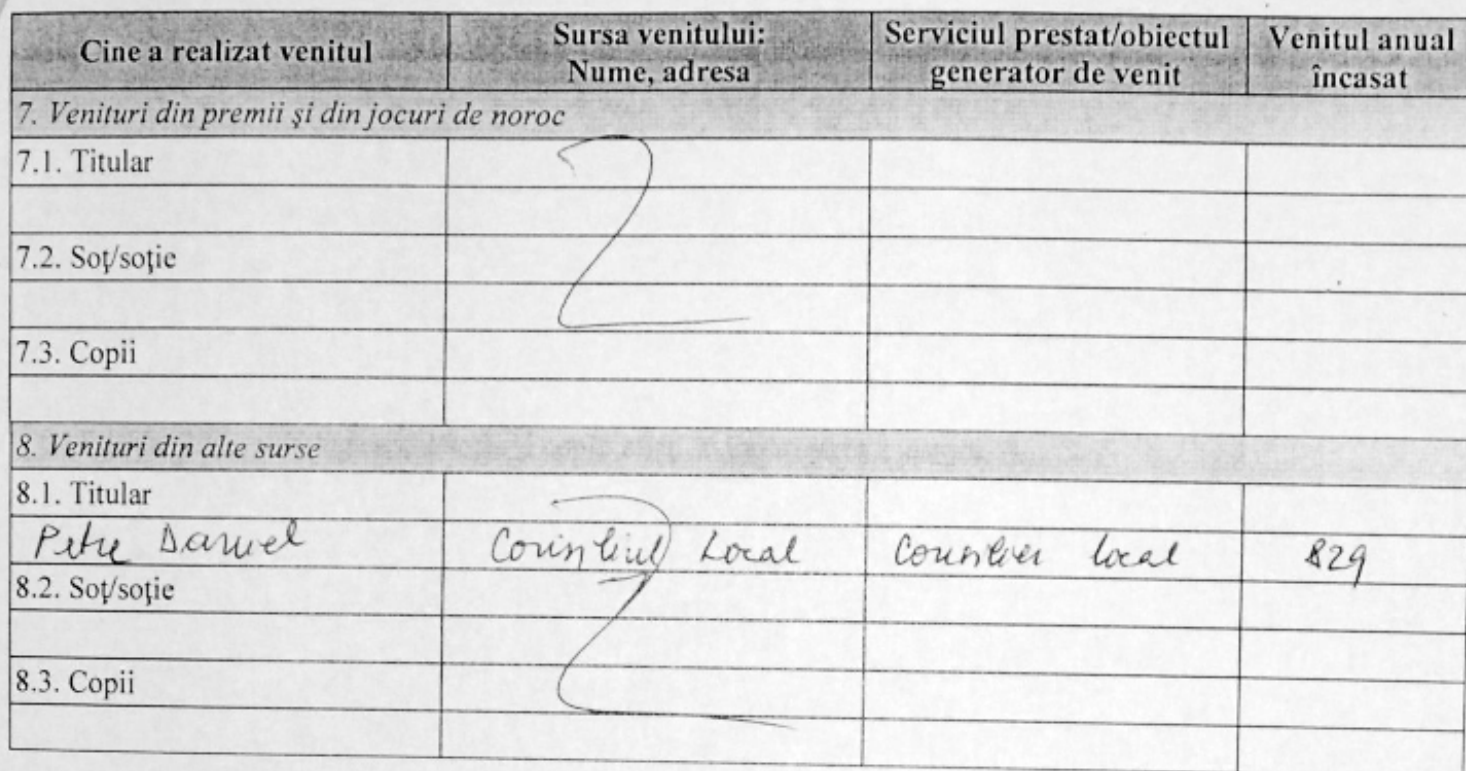 Cine a realizat venitul Sursa venitului: Nume, adresa Serviciul prestat/obiectul generator de venit Venitul anual încasat
7. Venituri din premii şi din jocuri de noroc
7.1. Titular
7.2. Soţ/soţie
7.3. Copii
8. Venituri din alte surse
8.1. Titular
Petre Daniel Consiliul Local Consilier local 829
8.2. Soţ/soţie
8.3. Copii